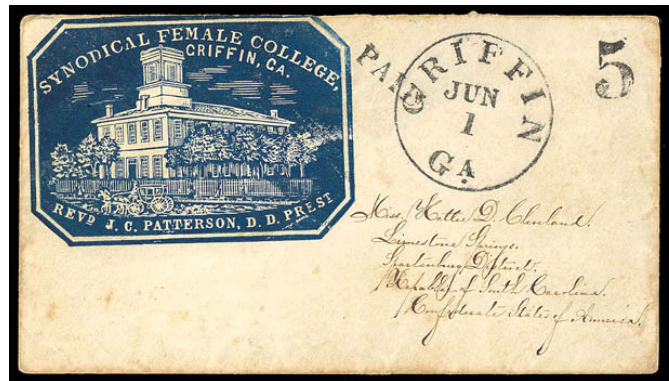 SYNODICAL FEMALE COLLEGE,
GRIFFIN, GA.
REVD J. C. PATTERSON, D. D. PREST
PAID
GRIFFIN
JUN
1
GA.
5
Miss Hattie D. Cleveland.
Limestone Springs.
Spartanburg District.
Republic of South Carolina.
Confederate States of America.